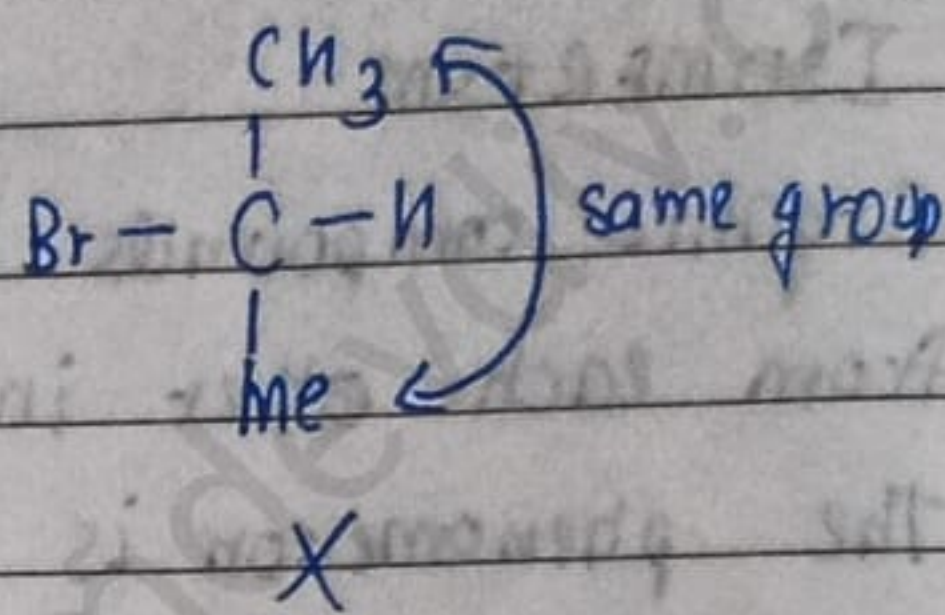 CH3
Br - C - H same group
Me
X